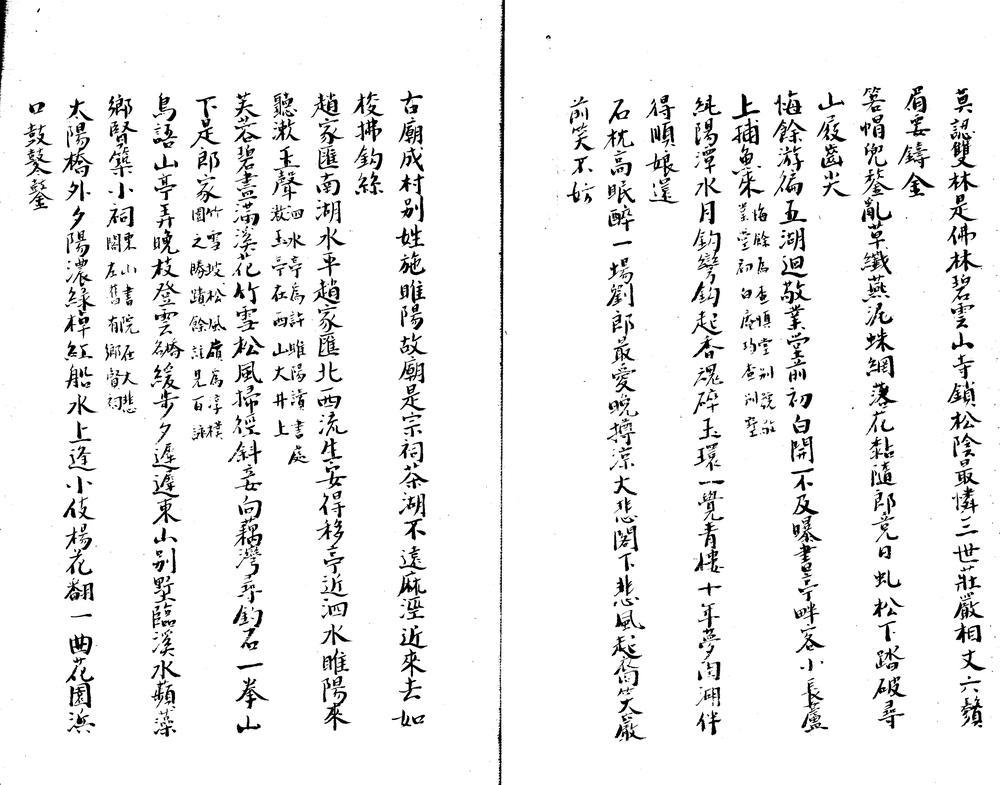 莫認雙林是佛林碧雲山寺鎖松陰最憐三世莊嚴相丈六鬚
眉要鑄金
箬帽兜鍪亂草纖燕泥蛛網落花黏隨郎竟日虬松下踏破尋
山屐齒尖
悔餘游徧五湖迴敬業堂前初白開不及曝書亭畔客小長蘆
上捕魚來
悔餘為查慎堂別號敬
業堂初白庵均查別墅
純陽潭水月鉤彎鉤起香魂碎玉環一覺青樓十年夢肉湖伴
得順娘還
石枕高眠醉一場劉郎最愛晚撙涼大悲閣下悲風起一笑巖
前笑不妨
古廟成村別姓施睢陽故廟是宗祠茶湖不遠麻涇近來去如
梭拂鉤絲
趙家匯南湖水平趙家匯北西流生安得移亭近泗水睢陽來
聽漱玉聲
泗水亭為許睢陽讀書處
漱玉亭在西山大井上
芙蓉碧盡滿溪花竹雪松風掃徑斜妾向藕灣尋釣石一拳山
下是郎家
竹雪坡松風嶺為淳樸
園之勝蹟餘詳見百詠
鳥語山亭弄晚枝登雲橋緩步夕遲遲東山別墅臨溪水蘋藻
鄉賢築小祠
東山書院在大悲
閣左舊有鄉賢祠
太陽橋外夕陽濃綠樟紅船水上逢小伎楊花翻一曲花園浜
口鼓鼕鼕